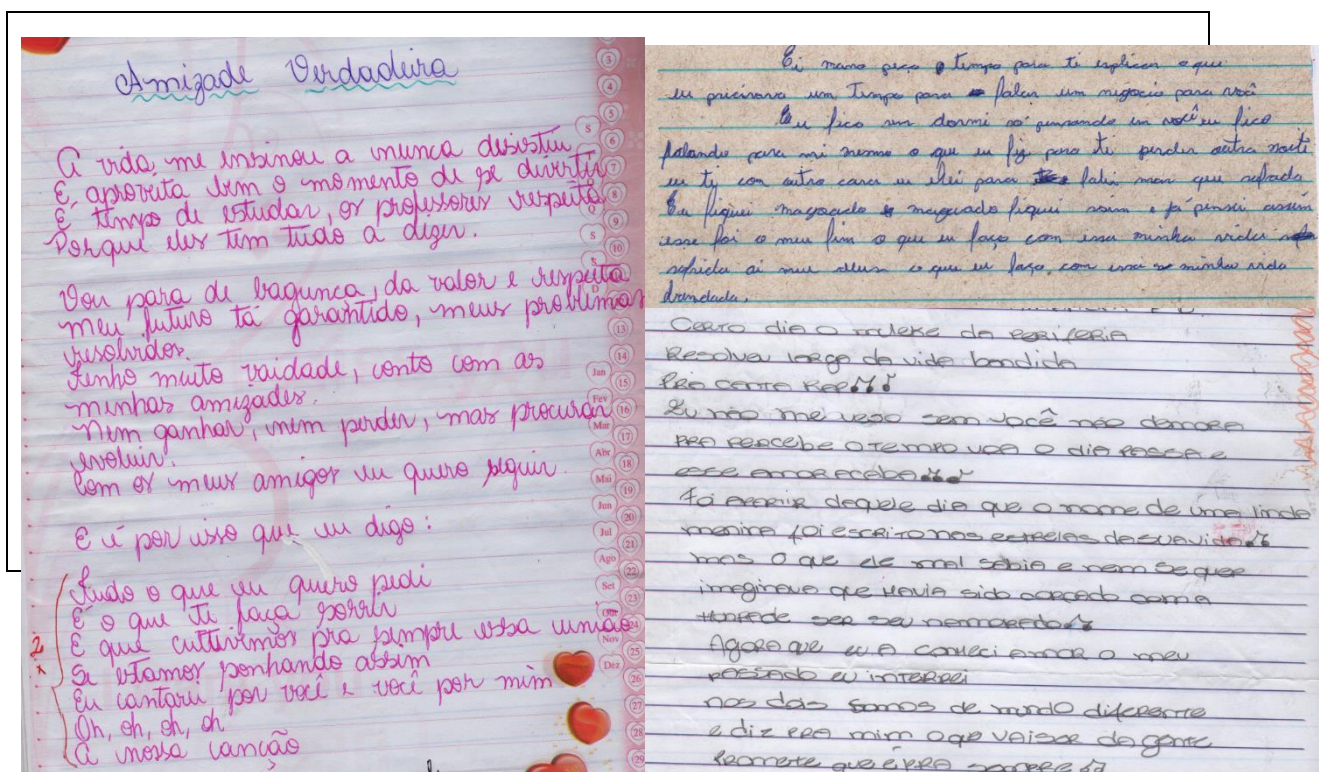 Amizade Verdadeira
A vida, me insinou a nunca desistiu
E, aproveita bem o momento de se divertir
É tempo de estudar, os professores respeita
Porque eles tem tudo a dizer.
Vou para de bagunca, da valor e respeita
meu futuro tá garantido, meus problemas
resolvidos.
Tenho muito vaidade, conto com as
minhas amizades.
Nem ganhar, nem perder, mas procurar
evoluir.
Com os meus amigos eu quero seguir.
E é por isso que eu digo:
Tudo o que eu quero pedi
É o que ti faça sorrir
E que cultivimos pra sempre essa união
Se estamos sonhando assim
Eu cantaru por você e você por mim
Oh, oh, oh, oh
A nossa canção
2
x
S
Q
S
S
D
Jan
Fev
Mar
Abr
Mai
Jun
Jul
Ago
Set
Out
Nov
Dez
3
4
5
6
7
9
10
13
14
15
16
17
18
19
20
21
22
23
24
25
26
27
28
29
Ei mano peço o tempo para ti esplicar o que
eu precisava um tempo para falar um negocio para você
Eu fico sem dormi só pensando en você eu fico
falando para mi mesmo o que eu fiz para ti perder outra noite
eu ti con outro cara eu olei para falei mais que safada
Eu fiquei magoado maguado fiquei asim e já pensei assim
esse foi o meu fim o que eu faço com essa minha vida
sofrida ai meu deus o que eu faço, con essa minha vida
Certo dia o muleke da periferia
Resolveu larga da vida bandida
Pra canta Rep
Eu não me vejo sem você não demora
pra percebe o tempo voa o dia passa e
esse amor acaba
Foi apartir daquele dia que o nome de uma linda
menina foi escrito nas estrelas da sua vida
mas o que ele mal sabia e nem se quer
imaginava que havia sido
ser seu namorado
Agora que eu a conheci amor o meu
passado eu interrei
nos dois somos de mundo diferente
e diz pra mim o que vai ser da gente
Promete que é pra sempre